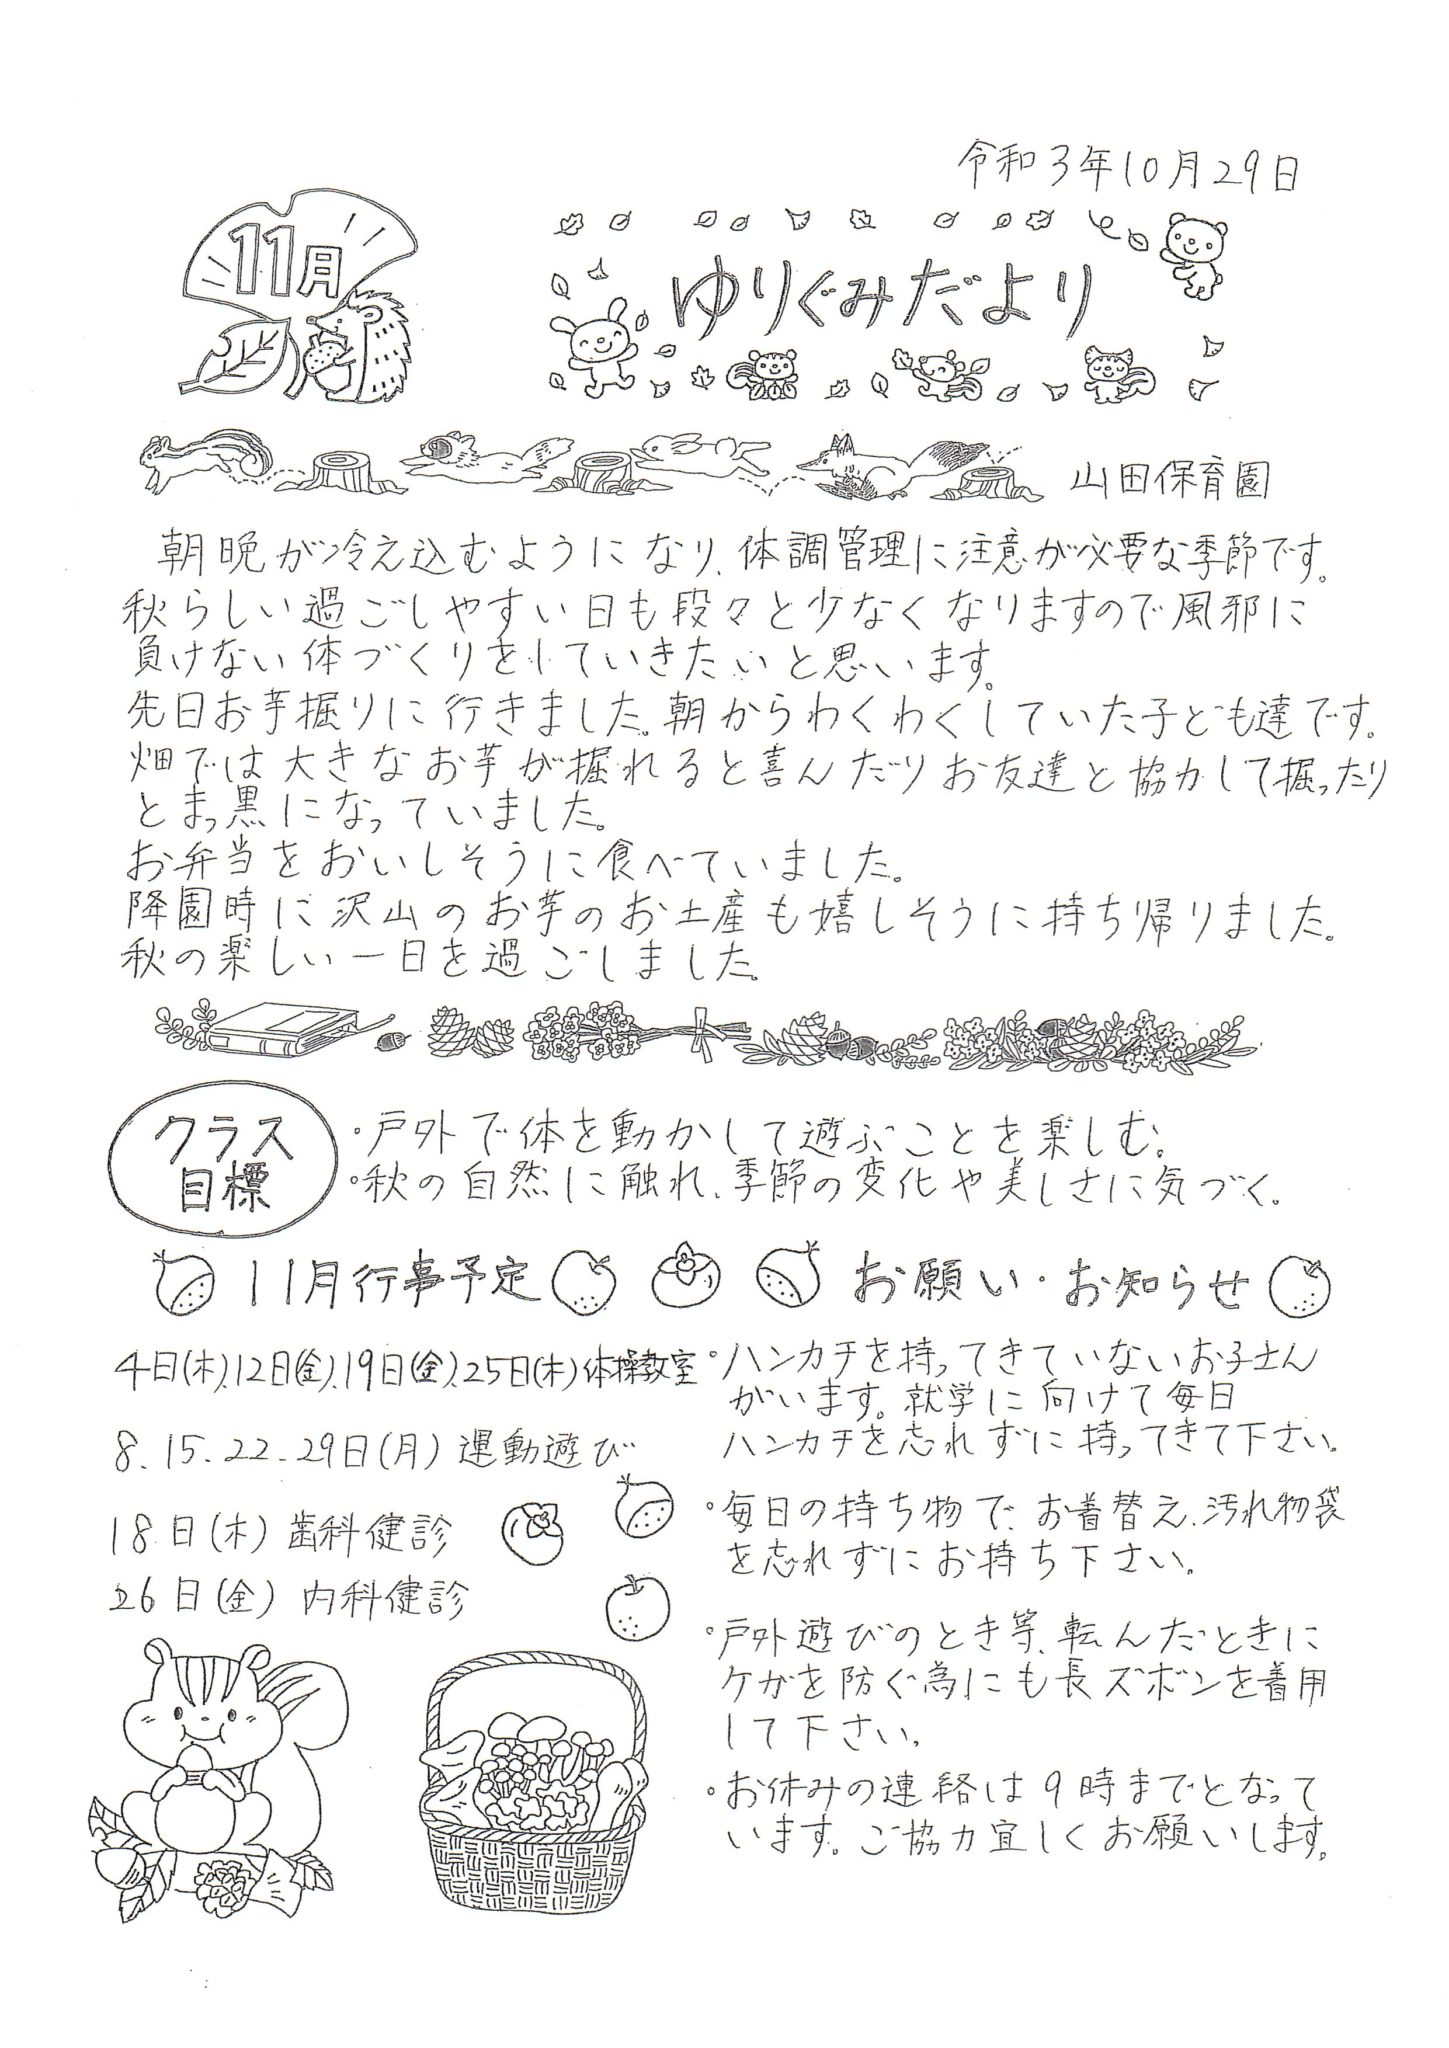 令和3年10月29日
11月
ゆりぐみだより
山田保育園
朝晩が冷え込むようになり、体調管理に注意が必要な季節です。
秋らしい過ごしやすい日も段々と少なくなりますので風邪に
負けない体づくりをしていきたいと思います。
先日お芋掘りに行きました。朝からわくわくしていた子ども達です。
畑では大きなお芋が掘れると喜んだりお友達と協力して掘ったり
とまっ黒になっていました。
お弁当をおいしそうに食べていました。
降園時に沢山のお芋のお土産も嬉しそうに持ち帰りました。
秋の楽しい一日を過ごしました。
クラス
目標
・戸外で体を動かして遊ぶことを楽しむ。
・秋の自然に触れ、季節の変化や美しさに気づく。
11月行事予定
4日(木)、12日(金)、19日(金)、25日(木)体操教室
8、15、22、29日(月)運動遊び
18日(木)歯科健診
26日(金)内科健診
お願い・お知らせ
・ハンカチを持ってきていないお子さん
がいます。就学に向けて毎日
ハンカチを忘れずに持ってきて下さい。
・毎日の持ち物で、お着替え、汚れ物袋
を忘れずにお持ち下さい。
・戸外遊びのとき等、転んだときに
ケガを防ぐ為にも長ズボンを着用
して下さい。
・お休みの連絡は9時までとなって
います。ご協力宜しくお願いします。